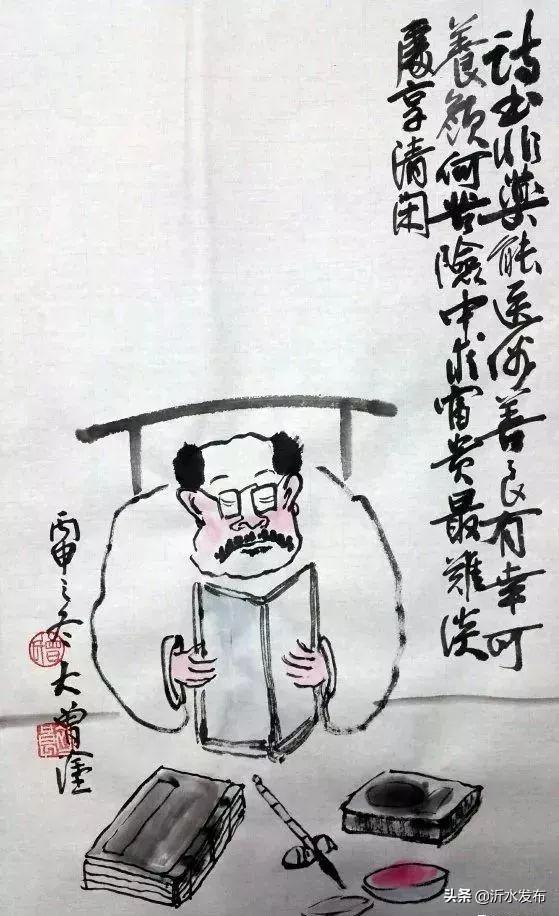 诗书非藥能医俗善良有幸可
養顏何苦險中求富贵最難淡
處享清闲
丙申之冬大曾塗
头条 @沂水发布